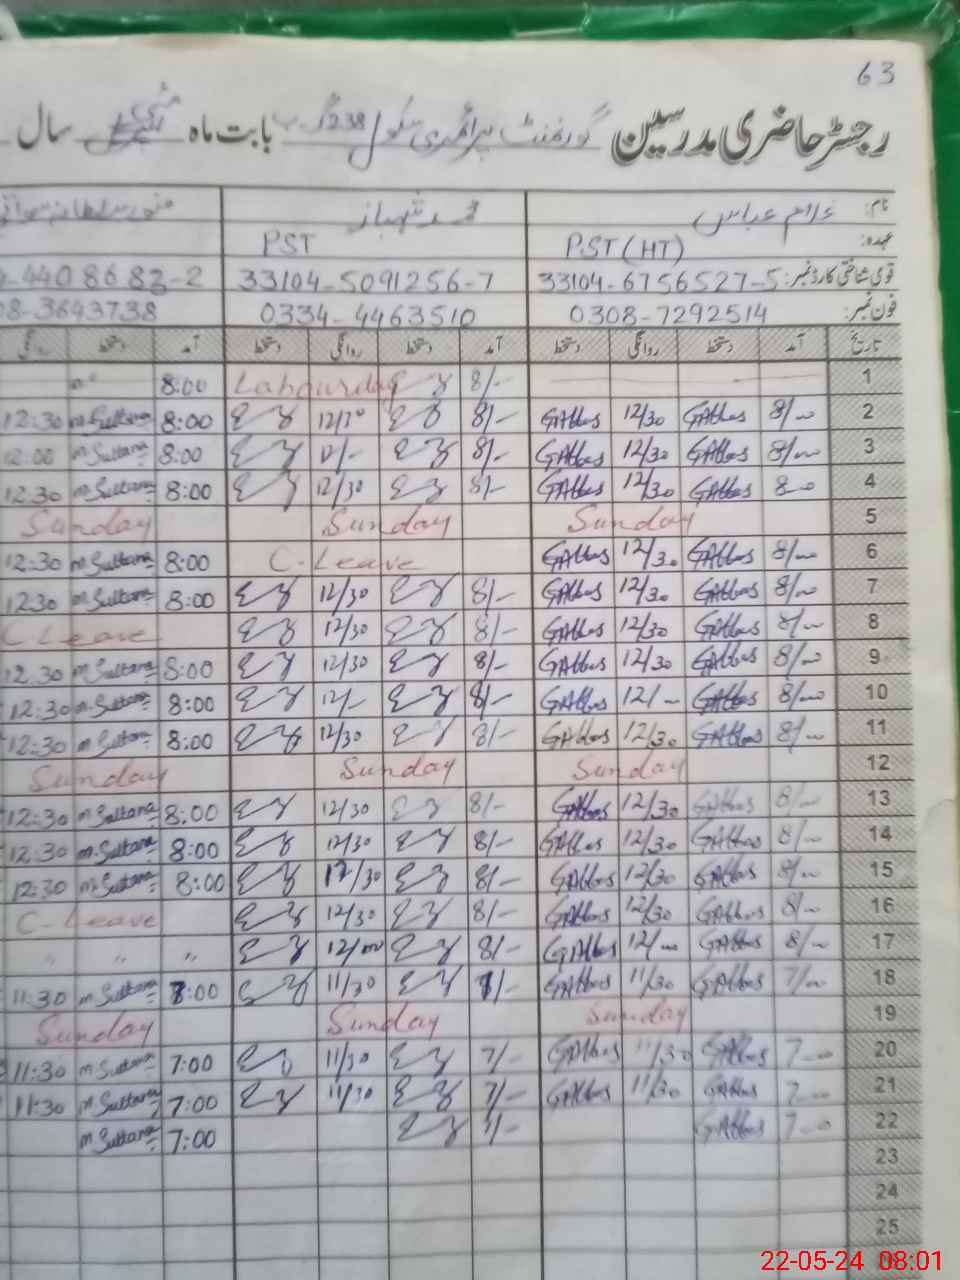 63
رجسٹر حاضری مدرسین گورنمنٹ پرائمری سکول 238 گ ب بابت ماہ مئی سال
نام: غلام عباس محمد شہباز
عہدہ: PST (HT) PST
قومی شناختی کارڈ نمبر: 33104-6756527-5 33104-5091256-7 4408683-2
فون نمبر: 0308-7292514 0334-4463510 08-3643738
تاریخ آمد دستخط روانگی دستخط آمد دستخط روانگی دستخط آمد دستخط روانگی
1 8/- Labourday 8:00
2 8/00 GAbbas 12/30 GAbbas 8/- 12/30 8:00 m.Sultana 12:30
3 8/00 GAbbas 12/30 GAbbas 8/- 12/- 8:00 m.Sultana 12:00
4 8-00 GAbbas 12/30 GAbbas 8/- 12/30 8:00 m.Sultana 12:30
5 Sunday Sunday Sunday
6 8/00 GAbbas 12/30 GAbbas C-Leave 8:00 m.Sultana 12:30
7 8/00 GAbbas 12/30 GAbbas 8/- 12/30 8:00 m.Sultana 12:30
8 8/00 GAbbas 12/30 GAbbas 8/- 12/30 C-Leave
9 8/00 GAbbas 12/30 GAbbas 8/- 12/30 8:00 m.Sultana 12:30
10 8/00 GAbbas 12/00 GAbbas 8/- 12/- 8:00 m.Sultana 12:30
11 8/00 GAbbas 12/30 GAbbas 8/- 12/30 8:00 m.Sultana 12:30
12 Sunday Sunday Sunday
13 8/00 GAbbas 12/30 GAbbas 8/- 12/30 8:00 m.Sultana 12:30
14 8/00 GAbbas 12/30 GAbbas 8/- 12/30 8:00 m.Sultana 12:30
15 8/00 GAbbas 12/30 GAbbas 8/- 12/30 8:00 m.Sultana 12:30
16 8/00 GAbbas 12/30 GAbbas 8/- 12/30 C-Leave
17 8/00 GAbbas 12/00 GAbbas 8/- 12/00 " " "
18 7/00 GAbbas 11/30 GAbbas 7/- 11/30 8:00 m.Sultana 11:30
19 Sunday Sunday Sunday
20 7-00 GAbbas 11/30 GAbbas 7/- 11/30 7:00 m.Sultana 11:30
21 7-00 GAbbas 11/30 GAbbas 7/- 11/30 7:00 m.Sultana 11:30
22 7-00 GAbbas 7/- 7:00 m.Sultana
23
24
25
22-05-24 08:01